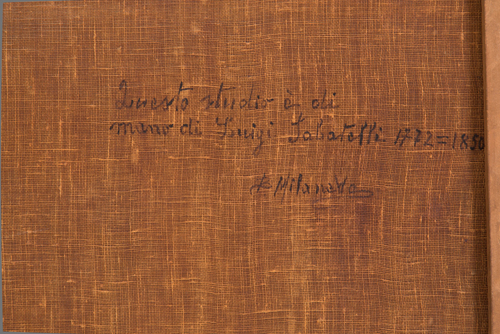 Questo studio è di
mano di Luigi Sabatelli 1772=1850